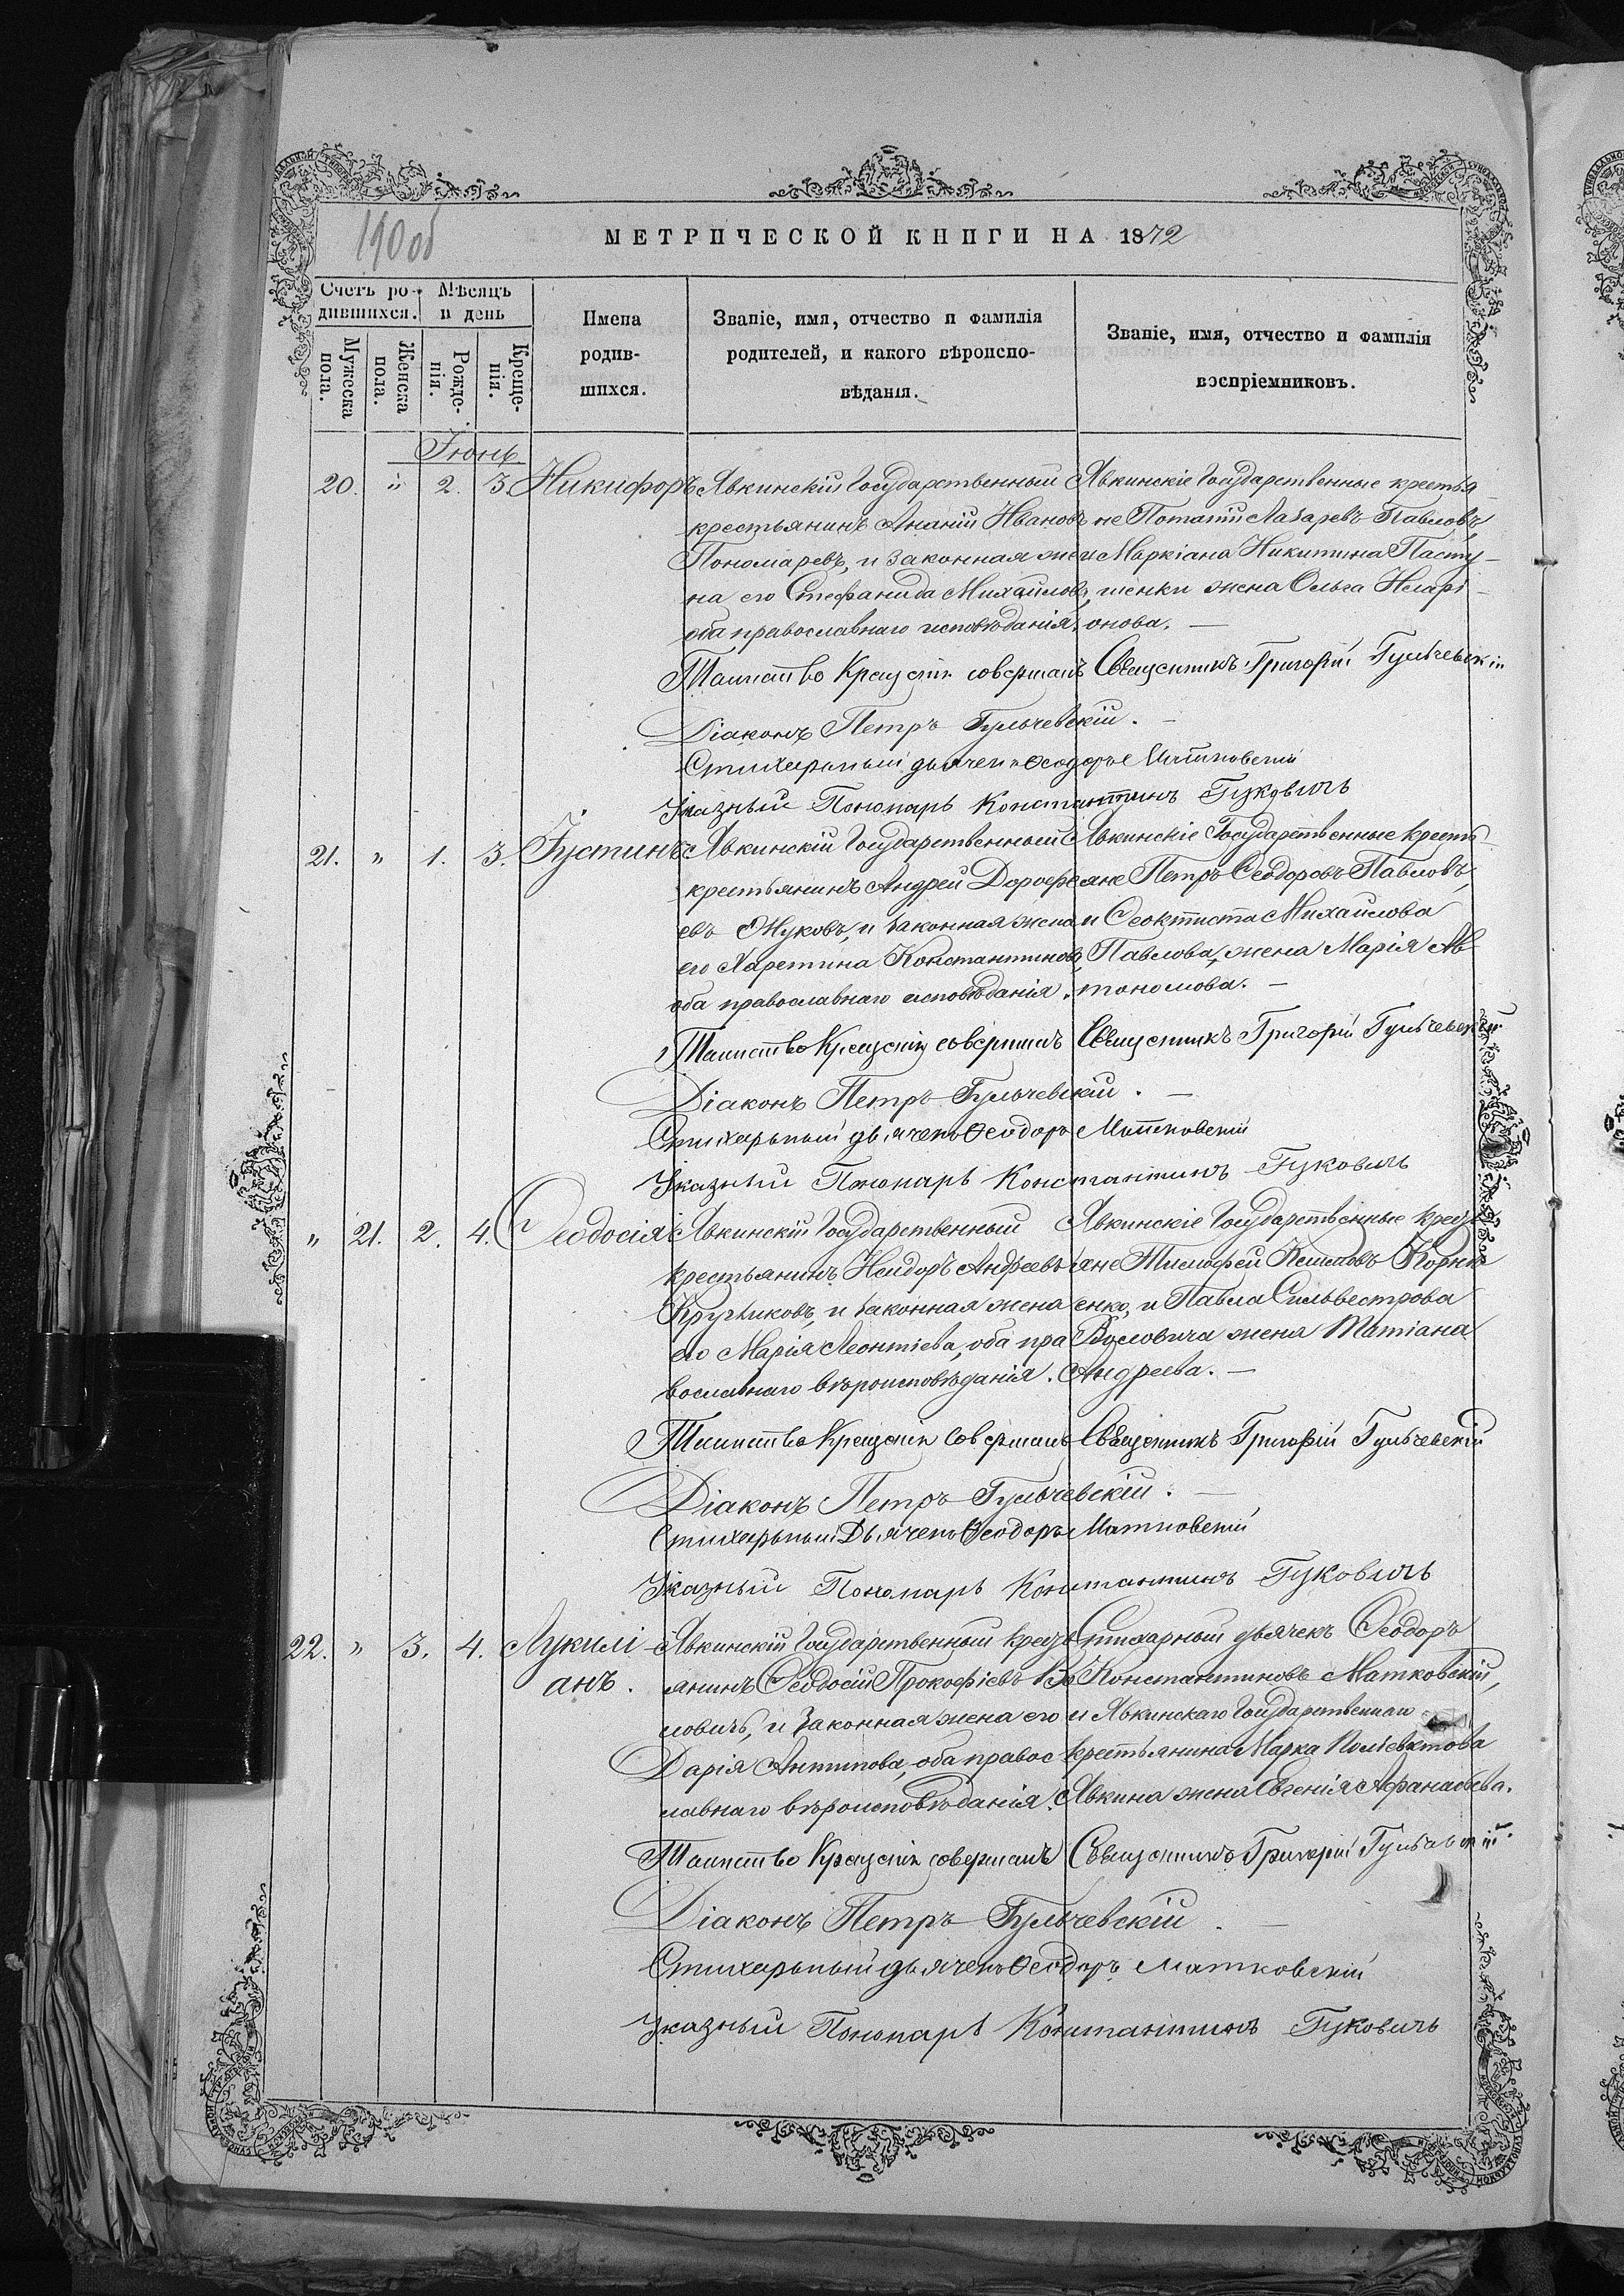 190об
МЕТРИЧЕСКОЙ КНИГИ НА 1872
Счетъ ро-
дившихся.
Мѣсяцъ
и день
Мужеска
пола.
Женска
пола.
Рожде-
нія.
Креще-
нія.
Имена
родив-
шихся.
Званіе, имя, отчество и фамилія
родителей, и какого вѣроиспо-
вѣданія.
Званіе, имя, отчество и фамилія
воспріемниковъ.
Іюнь
20. " 2. 3. Никифоръ
Явкинскій Государственный
крестьянинъ Ананій Ивановъ
Пономаревъ, и законная же
на его Стефанида Михайлова,
оба православнаго исповѣданія.
Явкинскіе Государственные крестья
не Потапій Лазаревъ Павловъ,
и Маркіана Никитина Пасту-
шенки жена Ольга Иларі-
онова. —
Таинство Крещенія совершалъ Священникъ Григорій Гульчевскій
Діаконъ Петръ Гульчевскій. —
Стихарный дьячекъ Ѳеодоръ Матковскій
Указный Пономарь Константинъ Гуковичъ
21. " 1. 3. Іустинъ
Явкинскій Государственный
крестьянинъ Андрей Дороѳе
евъ Жуковъ, и законная жена
его Харетина Константинова,
оба православнаго исповѣданія.
Явкинскіе Государственные кресть
яне Петръ Ѳеодоровъ Павловъ,
и Ѳеоктиста Михайлова
Павлова, жена Марія Ав
тономова. —
Таинство Крещенія совершилъ Священникъ Григорій Гульчевскій
Діаконъ Петръ Гульчевскій. —
Стихарный дьячекъ Ѳеодоръ Матковскій
Указный Пономарь Константинъ Гуковичъ
" 21. 2. 4. Ѳеодосія
Явкинскій Государственный
крестьянинъ Исидоръ Андреевъ
Кручниковъ, и законная жена
его Марія Леонтіева, оба пра
вославнаго вѣроисповѣданія.
Явкинскіе Государственные крест
яне Тимоѳей Корніе
енко, и Павла Сильвестрова
жена Татіана
Андреева. —
Таинство Крещенія совершалъ Священникъ Григорій Гульчевскій
Діаконъ Петръ Гульчевскій. —
Стихарный Дьячекъ Ѳеодоръ Матковскій
Указный Пономарь Константинъ Гуковичъ
22. " 3. 4. Лукилі
анъ.
Явкинскій Государственный крест
янинъ Ѳеодосій Прокофіевъ
ловичъ, и законная жена его
Дарія Антипова, оба правос
лавнаго вѣроисповѣданія.
Стихарный дьячекъ Ѳеодоръ
Константиновъ Матковскій,
и Явкинскаго Государственнаго
крестьянина Марка Поліевктова
Явкина жена Евгенія Аѳанасіева.
Таинство Крещенія совершалъ Священникъ Григорій Гульчевскій.
Діаконъ Петръ Гульчевскій. —
Стихарный дьячекъ Ѳеодоръ Матковскій
Указный Пономарь Константинъ Гуковичъ